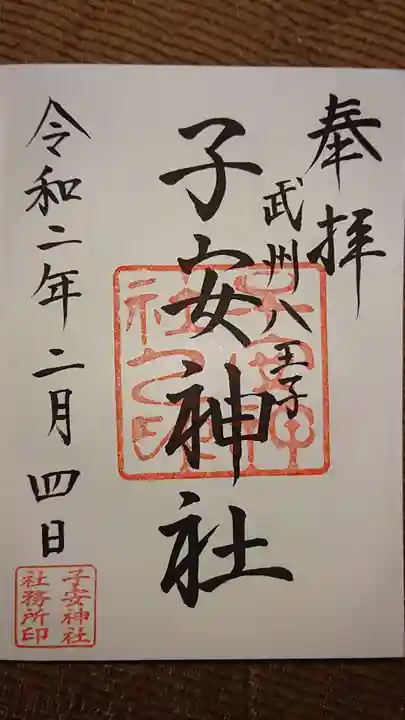 奉拝
武州八王子
子安神社
令和二年二月四日
子安神社
社務所印